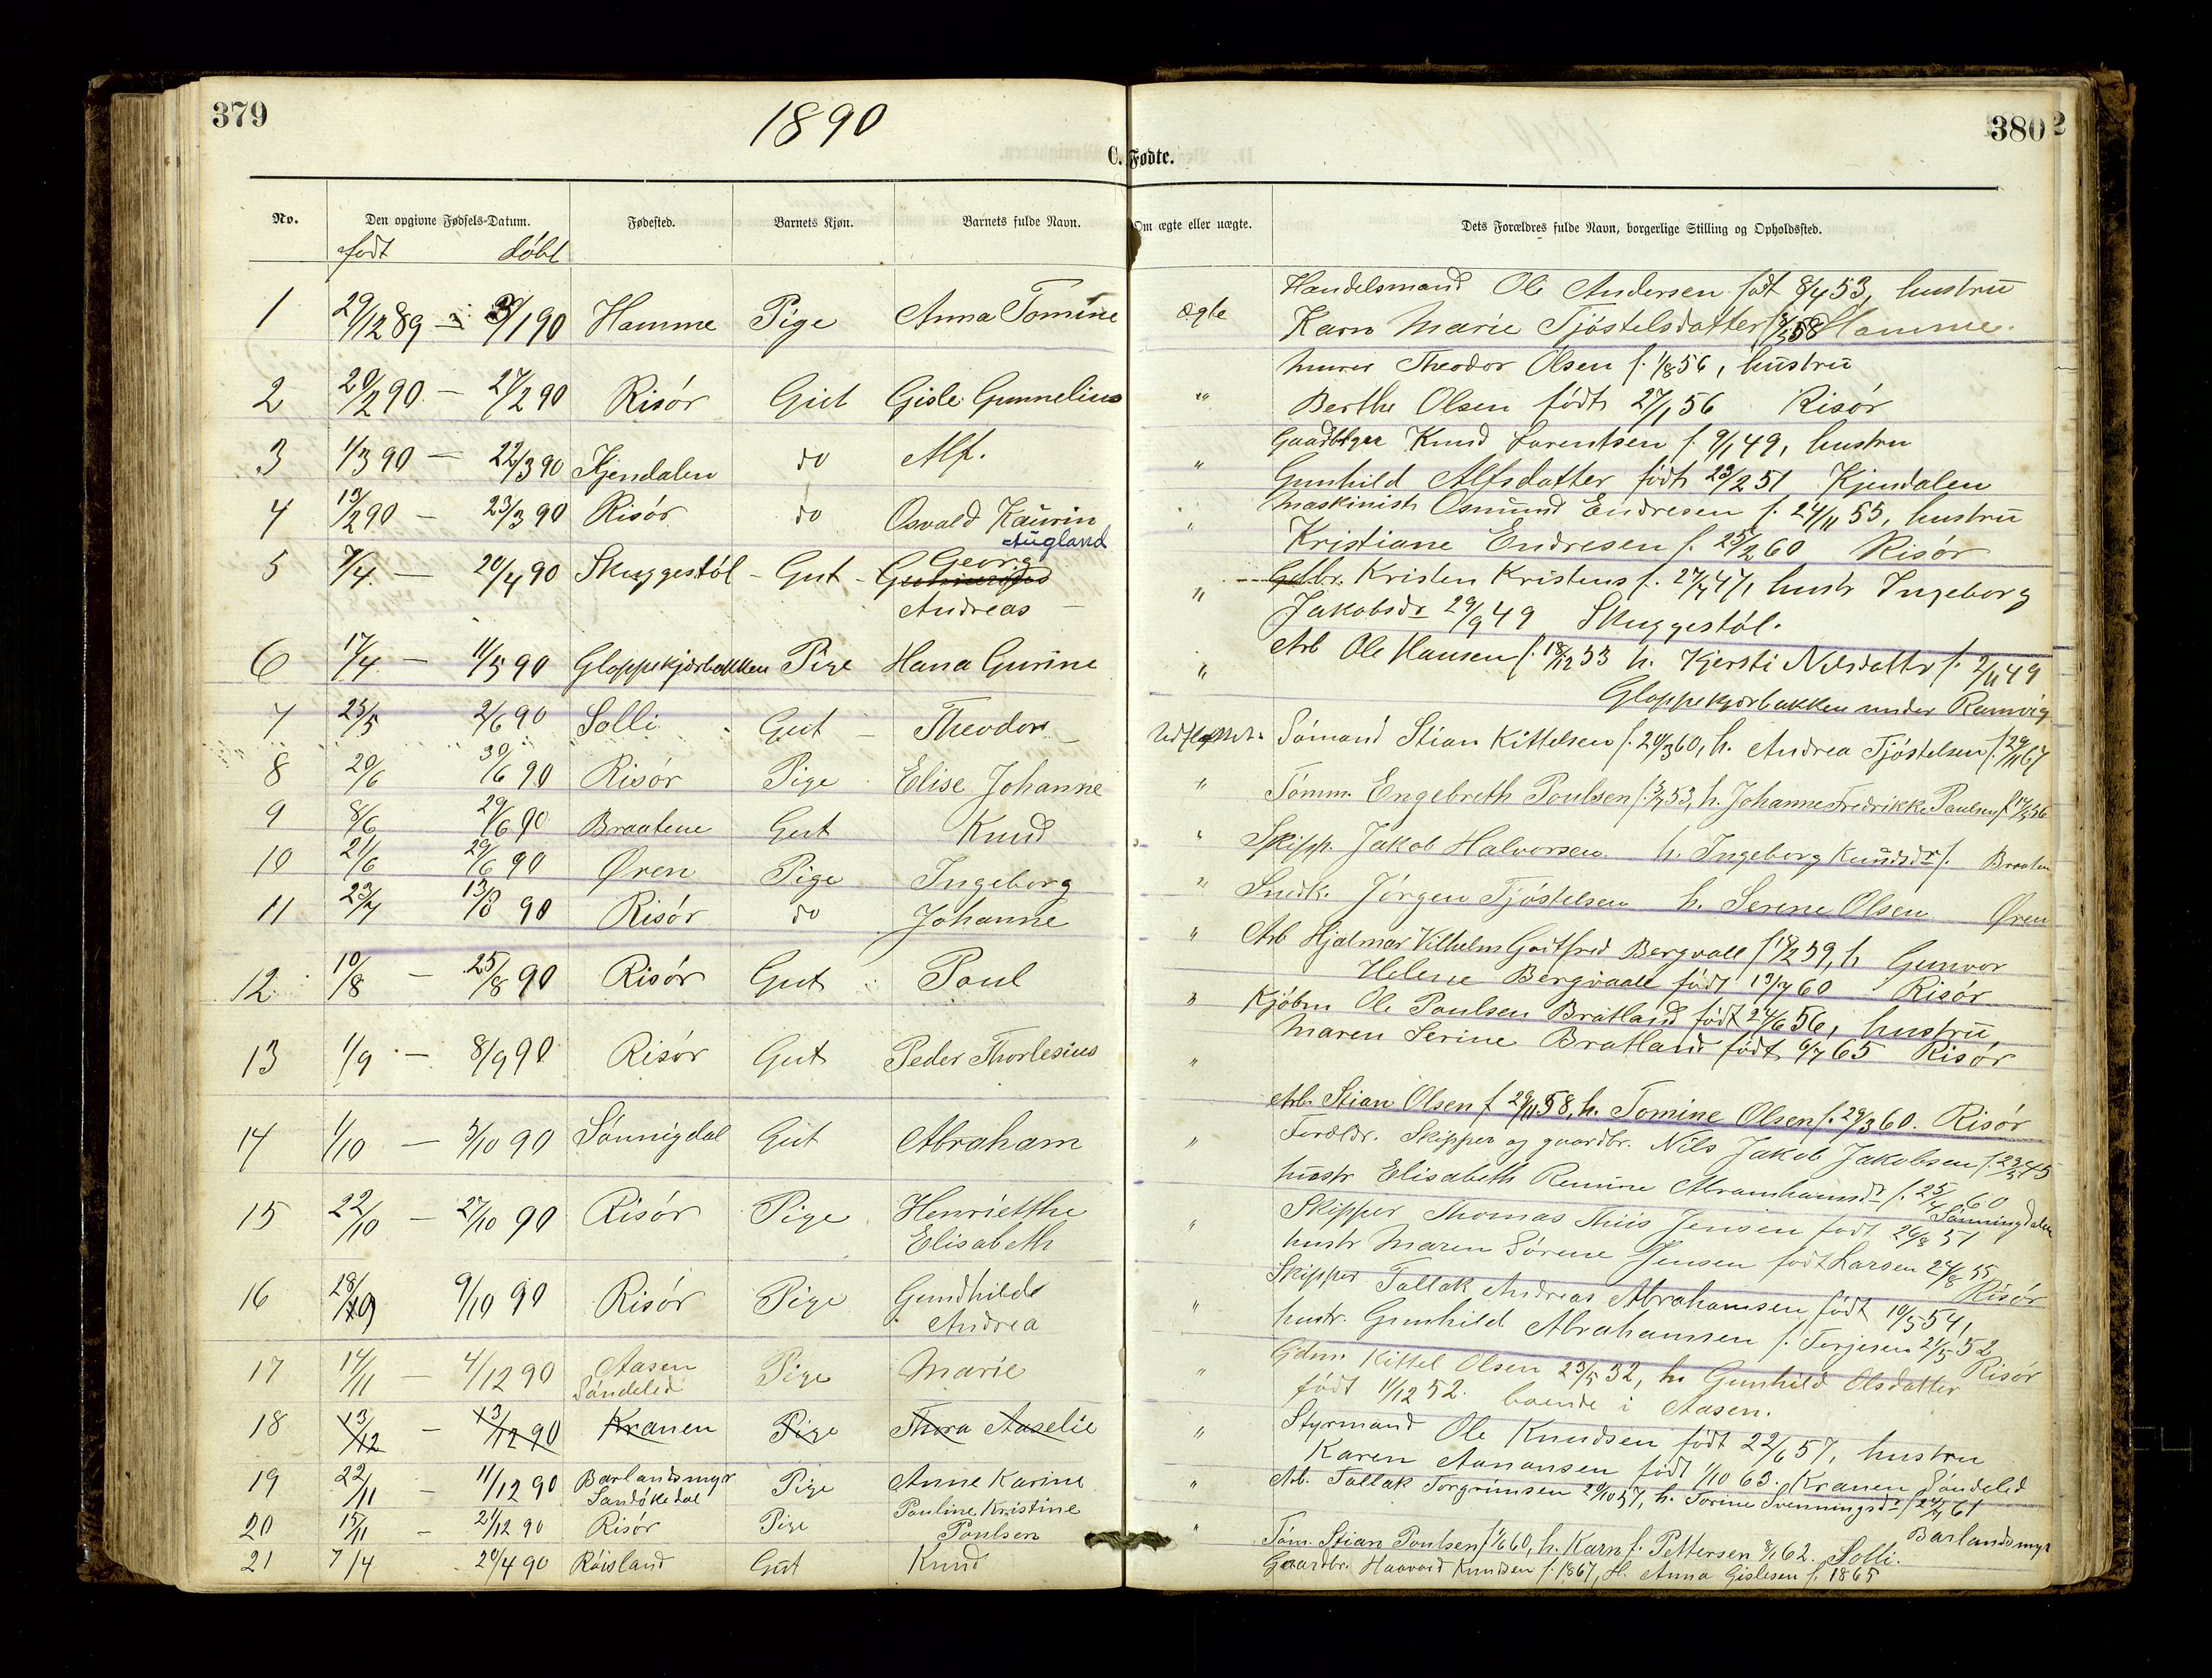 379
1890
380
2
C. Fødte.
No. Den opgivne Fødsels-Datum. Fødested. Barnets Kjøn. Barnets fulde Navn. Om ægte eller uægte. Dets Forældres fulde Navn, borgerlige Stilling og Opholdssted.
født døbt
1 29/12 89 - 3/1 90 Hamme Pige Anna Tomine ægte Handelsmand Ole Andersen født 8/4 53, hustru
Karn Marie Tjøstelsdatter 58 Hamme.
2 20/2 90 - 27/2 90 Risør Gut Gisle Gunnelius " Murer Theodor Olsen f. 1/8 56, hustru
Berthe Olsen født 27/1 56 Risør
3 1/3 90 - 22/3 90 Kjendalen do Alf. " Knud Larentsen f. 9/1 49, hustru
Gunhild Alfsdatter født 23/2 51 Kjendalen
4 13/2 90 - 23/3 90 Risør do Osvald Kaurin " Maskinist Osmund Endresen f. 24/11 55, hustru
Augland
Kristiane Endresen f. 25/2 60 Risør
5 7/4 - 20/4 90 Skuggestøl - Gut - Georg " Gdbr. Kristen Kristens f. 27/7 47, hustr Ingeborg
Andreas - Jakobsdr 29/9 49 Skuggestøl.
6 17/4 - 11/5 90 Gloppekjærbakken Pige Hana Gurine " Arb Ole Hansen f. 18/12 53 h. Kjersti Nilsdattr f. 2/11 49
Gloppekjærbakken under Ramvig
7 25/5 2/6 90 Solli Gut - Theodor Sømand Stian Kittelsen f. 20/3 60, h. Andrea Tjøstelsen f. 29/11 67
8 20/6 30/6 90 Risør Pige Elise Johanne " Tømm. Engebreth Poulsen f. 53, h. Johanne Fredrikke Paulsen
9 8/6 29/6 90 Braatene Gut Knud " Skipp. Jakob Halvorsen h. Ingeborg Knudsdr f. Braaten
10 21/6 29/6 90 Øren Pige Ingeborg " Snedk. Jørgen Tjøstelsen h. Serene Olsen Øren
11 23/7 13/8 90 Risør do Johanne " Arb Hjalmar Vilhelm Godtfred Bergvall f 18/2 59, h. Gunvor
Helene Bergvaall født 13/7 60 Risør
12 10/8 - 25/8 90 Risør Gut Poul " Kjøbm Ole Paulsen Bratland født 24/6 56, hustru
Maren Serine Bratland født 6/7 65 Risør
13 1/9 - 8/9 90 Risør Gut Peder Thorlesius " Arb. Stian Olsen f 29/11 58, h. Tomine Olsen f. 29/3 60. Risør
14 1/10 - 5/10 90 Sønnigdal Gut Abraham " Foreldr. Skipper og gaardbr. Nils Jakob Jakobsen f. 23/5 45
hustr Elisabeth Remine Abramhamsdr f. 25/4 60
Sønningdalen
15 22/10 - 27/10 90 Risør Pige Henrietthe " Skipper Thomas Thiis Jensen født 26/8 51
Elisabeth hustr Maren Sørene Jensen født Larsen 27/8 55
Risør
16 18/9 9/10 90 Risør Pige Gundhilde " Skipper Tallak Andreas Abrahamsen født 10/5 54,
Andrea hustr. Gunhild Abrahamsen f. Terjesen 21/5 52
Risør
17 14/11 - 4/12 90 Aasen Pige Marie " Gdm. Kittel Olsen 23/5 32, h. Gunhild Olsdatter
Søndeled født 11/12 52. boende i Aasen.
18 13/12 - 13/12 90 Kranen Pige Thora Aaselie " Styrmand Ole Knudsen født 22/6 57, hustru
Karen Aanonsen født 1/10 63. Kranen Søndeled
19 22/11 - 11/12 90 Barlandsmyr Pige Anne Karine " Arb. Tallak Torgrimsen 29/10 57, h. Torine Svenningsdr f 24/7 61
Sandøkedal Barlandsmyr
20 15/11 - 21/12 90 Risør Pige Pauline Kristine " Tøm. Stian Poulsen f 60, h. Karn f. Pettersen 8/1 62. Solli.
Poulsen
21 7/4 20/4 90 Røisland Gut Knud Gaardbr. Haavard Knudsen f. 1867, H. Anna Gislesen f. 1865